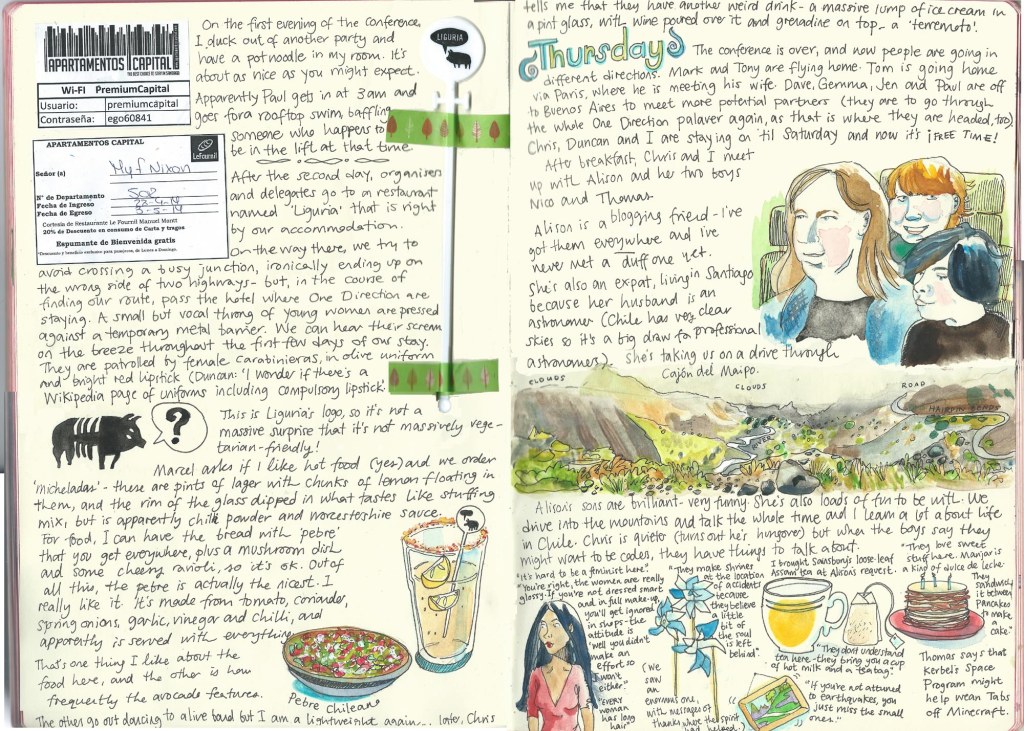 APARTAMENTOS CAPITAL
THE BEST CHOICE TO STAY IN SANTIAGO
Wi-FI PremiumCapital
Usuario: premiumcapital
Contraseña: ego60841
APARTAMENTOS CAPITAL
LeFournil
Señor (a) Myf Nixon
N° de Departamento
Fecha de Ingreso
Fecha de Egreso
Cortesia de Restaurante Le Fournil Manuel Montt
20% de Descuento en consumo de Carta y tragos
Espumante de Bienvenida gratis
On the first evening of the conference,
I duck out of another party and
have a pot noodle in my room. It's
about as nice as you might expect.
Apparently Paul gets in at 3am and
goes for a rooftop swim, baffling
someone who happens to
be in the lift at that time
After the second day, organisers
and delegates go to a restaurant
named 'Liguria' that is right
by our accommodation.
On the way there, we try to
avoid crossing a busy junction, ironically ending up on
the wrong side of two highways - but, in the course of
finding our route, pass the hotel where One Direction are
staying. A small but vocal throng of young women are pressed
against a temporary metal barrier. We can hear their scream
on the breeze throughout the first few days of our stay.
They are patrolled by female carabinieras, in olive uniform
and bright red lipstick (Duncan: 'I wonder if there's a
Wikipedia page of uniforms including compulsory lipstick'.
LIGURIA
?
This is Liguria's logo, so it's not a
massive surprise that it's not massively vege-
tarian-friendly!
Marcel asks if I like hot food (yes) and we order
'micheladas' - these are pints of lager with chunks of lemon floating in
them, and the rim of the glass dipped in what tastes like stuffing
mix, but is apparently chilli powder and worcestershire sauce.
For food, I can have the bread with 'pebre'
that you get everywhere, plus a mushroom dish
and some cheesy ravioli, so it's ok. Out of
all this, the pebre is actually the nicest. I
really like it. It's made from tomato, coriander,
spring onions, garlic, vinegar and chilli, and
apparently is served with everything
That's one thing I like about the
food here, and the other is how
frequently the avocado features.
Pebre Chileano
The others go out dancing to a live band but I am a lightweight again... later, Chris
tells me that they have another weird drink - a massive lump of ice cream in
a pint glass, with wine poured over it and grenadine on top - a 'terremoto'.
Thursday
The conference is over, and now people are going in
different directions. Mark and Tony are flying home. Tom is going home
via Paris, where he is meeting his wife. Dave, Gemma, Jen and Paul are off
to Buenos Aires to meet more potential partners (they are to go through
the whole One Direction palaver again, as that is where they are headed, too).
Chris, Duncan and I are staying on 'til Saturday and now it's ¡FREE TIME!
After breakfast, Chris and I meet
up with Alison and her two boys
Nico and Thomas.
Alison is a blogging friend - I've
got them everywhere and I've
never met a duff one yet.
She's also an expat, living in Santiago
because her husband is an
astronomer (Chile has very clear
skies so it's a big draw for professional
astronomers). She's taking us on a drive through
Cajón del Maipo.
CLOUDS
CLOUDS
ROAD
HAIRPIN BENDS
RIVER
Alison's sons are brilliant - very funny. She's also loads of fun to be with. We
drive into the mountains and talk the whole time and I learn a lot about life
in Chile. Chris is quieter (turns out he's hungover) but when the boys say they
might want to be coders, they have things to talk about.
"It's hard to be a feminist here."
"You're right, the women are really
glossy. If you're not dressed smart
and in full make-up
you'll get ignored
in shops - the
attitude is
'well you didn't
make an
effort so
I won't
either'."
"EVERY
woman
has long
hair"
"They make shrines
at the location
of accidents
because
they believe
a little
bit of
the soul
is left
behind".
(We
saw
an
enormous one,
with messages of
thanks where the spirit
had helped.)
I brought Sainsbury's loose-leaf
Assam tea at Alison's request.
"They don't understand
tea here - they bring you a cup
of hot milk and a teabag."
"If you're not attuned
to earthquakes, you
just miss the small
ones."
"They love sweet
stuff here. Manjar is
a kind of dulce de leche.
They
sandwich
it between
pancakes
to make
a
cake."
Thomas says that
Kerbel's Space
Program might
help wean Tabs
off Minecraft.